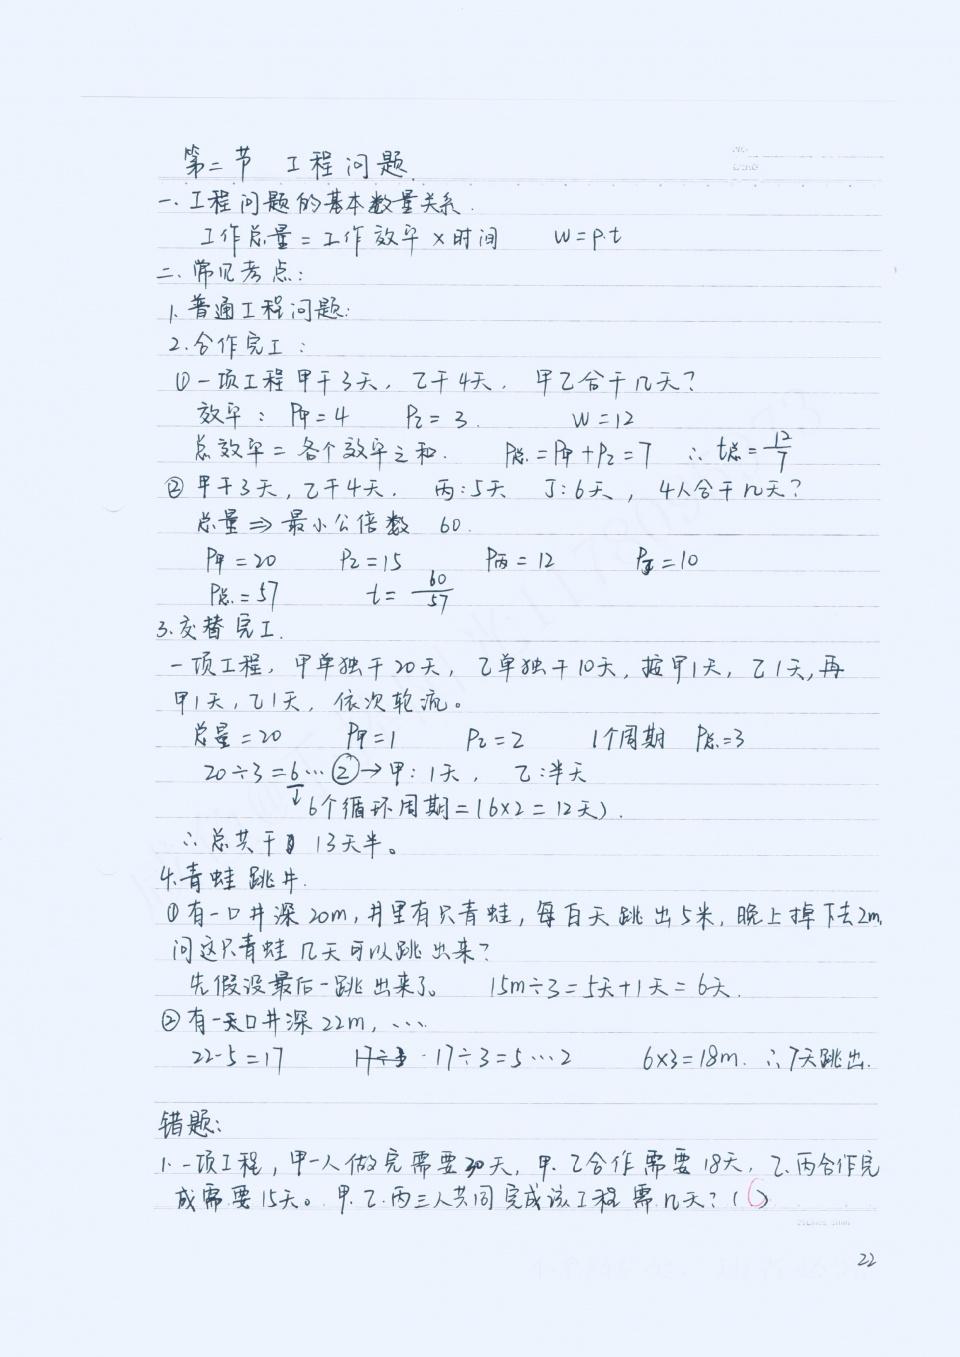 第二节 工程问题.
一.工程问题的基本数量关系.
工作总量=工作效率×时间 W=P·t
二.常见考点:
1.普通工程问题:
2.合作完工:
①一项工程甲干3天,乙干4天. 甲乙合干几天?
效率: P甲=4 P乙=3. W=12
总效率=各个效率之和. P总=P甲+P乙=7 ∴t总=12/7
②甲干3天,乙干4天. 丙:5天 丁:6天,4人合干几天?
总量⇒最小公倍数 60.
P甲=20 P乙=15 P丙=12 P丁=10
P总=57 t=60/57
3.交替完工.
一项工程,甲单独干20天,乙单独干10天,按甲1天,乙1天,再
甲1天,乙1天,依次轮流。
总量=20 P甲=1 P乙=2 1个周期 P总=3
20÷3=6…②→甲:1天, 乙:半天
↓6个循环周期=(6×2=12天).
∴总共干 13天半。
4.青蛙跳井.
①有一口井深20m,井里有只青蛙,每白天跳出5米,晚上掉下去2m,
问这只青蛙几天可以跳出来?
先假设最后一跳出来了。 15m÷3=5天+1天=6天.
②有一口井深22m,…
22-5=17 17÷3 ·17÷3=5…2 6×3=18m. ∴7天跳出.
错题:
1.一项工程,甲一人做完需要30天,甲.乙合作需要18天,乙.丙合作完
成需要15天。甲.乙.丙三人共同完成该工程需几天?( )
22